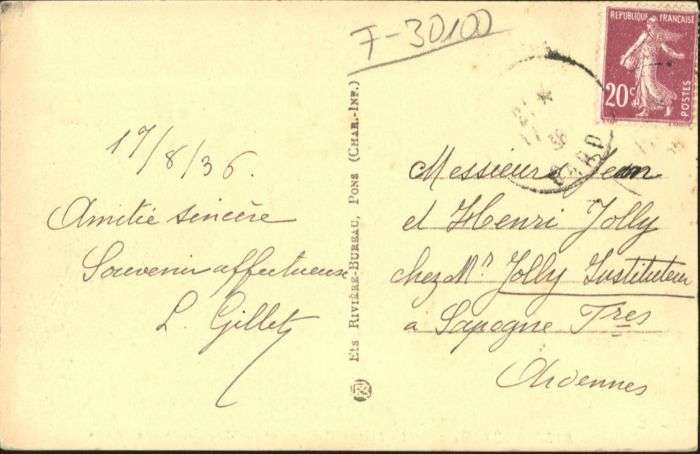 F-30100
REPUBLIQUE FRANÇAISE
20c
POSTES
17/8/36.
Amitié sincère
Souvenir affectueux
L. Gillet
Ets RIVIÈRE-BUREAU, PONS (CHAR.-INF.)
Messieurs Jean
et Henri Jolly
chez Mr Jolly Instituteur
a Sapogne
Ardennes